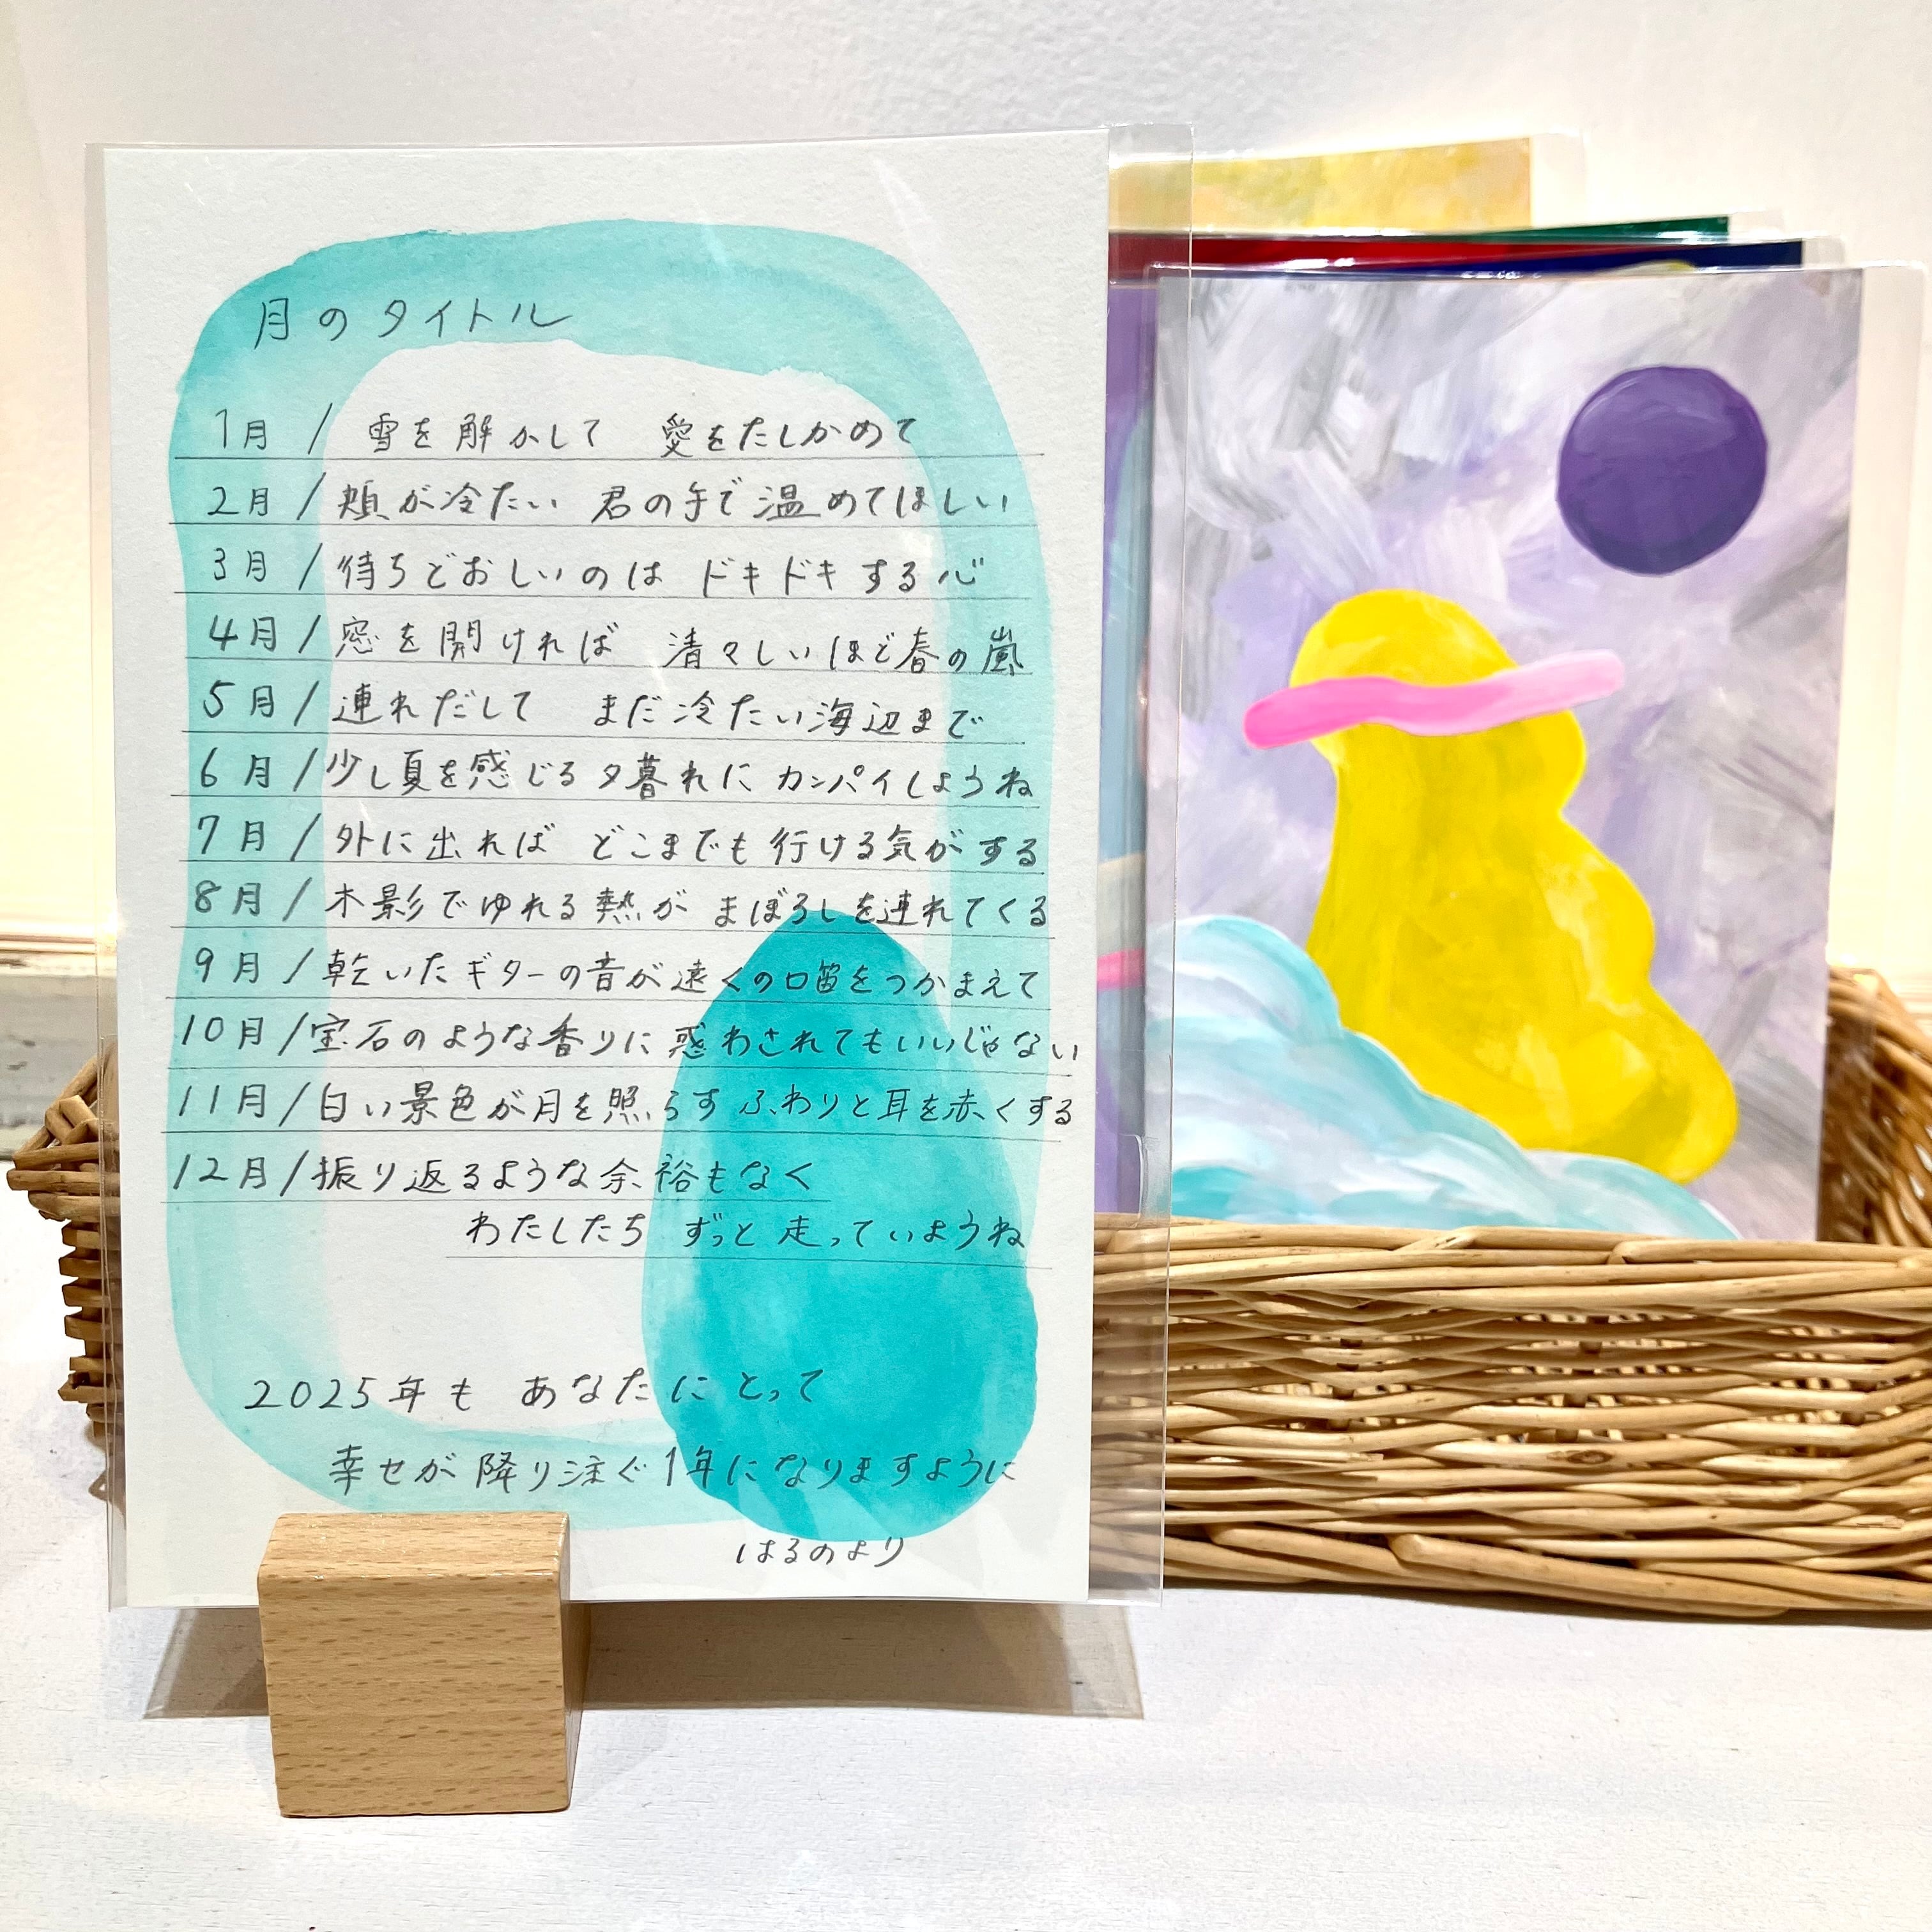 月のタイトル
1月 / 雪を解かして 愛をたしかめて
2月 / 頬が冷たい 君の手で温めてほしい
3月 / 待ちどおしいのは ドキドキする心
4月 / 窓を開ければ 清々しいほど春の嵐
5月 / 連れだして まだ冷たい海辺まで
6月 / 少し夏を感じる夕暮れに カンパイしようね
7月 / 外に出れば どこまでも行ける気がする
8月 / 木影でゆれる熱が まぼろしを連れてくる
9月 / 乾いたギターの音が遠くの口笛をつかまえて
10月 / 宝石のような香りに惑わされてもいいじゃない
11月 / 白い景色が月を照らす ふわりと耳を赤くする
12月 / 振り返るような余裕もなく
わたしたち ずっと走っていようね
2025年も あなたにとって
幸せが降り注ぐ1年になりますように
はるのより